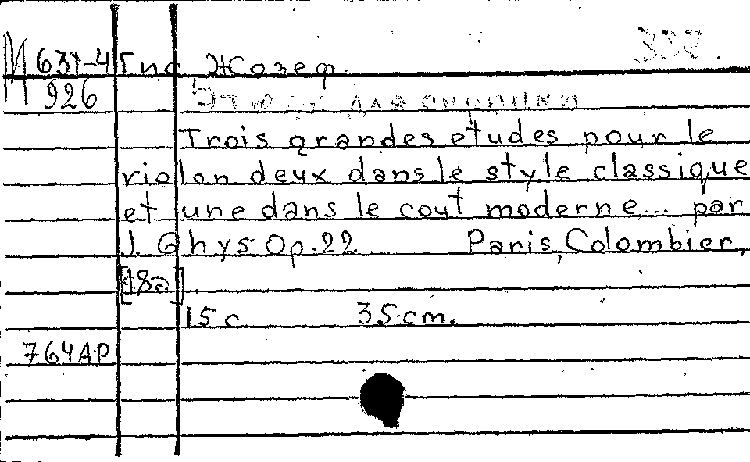 М 631-4 Гис Жозеф. 338.
926 Этюды для скрипки
Trois grandes etudes pour le
violon deux dans le style classique
et une dans le cout moderne... par
J. Ghys Op. 22 Paris, Colombier,
[18-]
15 c. 35 cm.
764AP